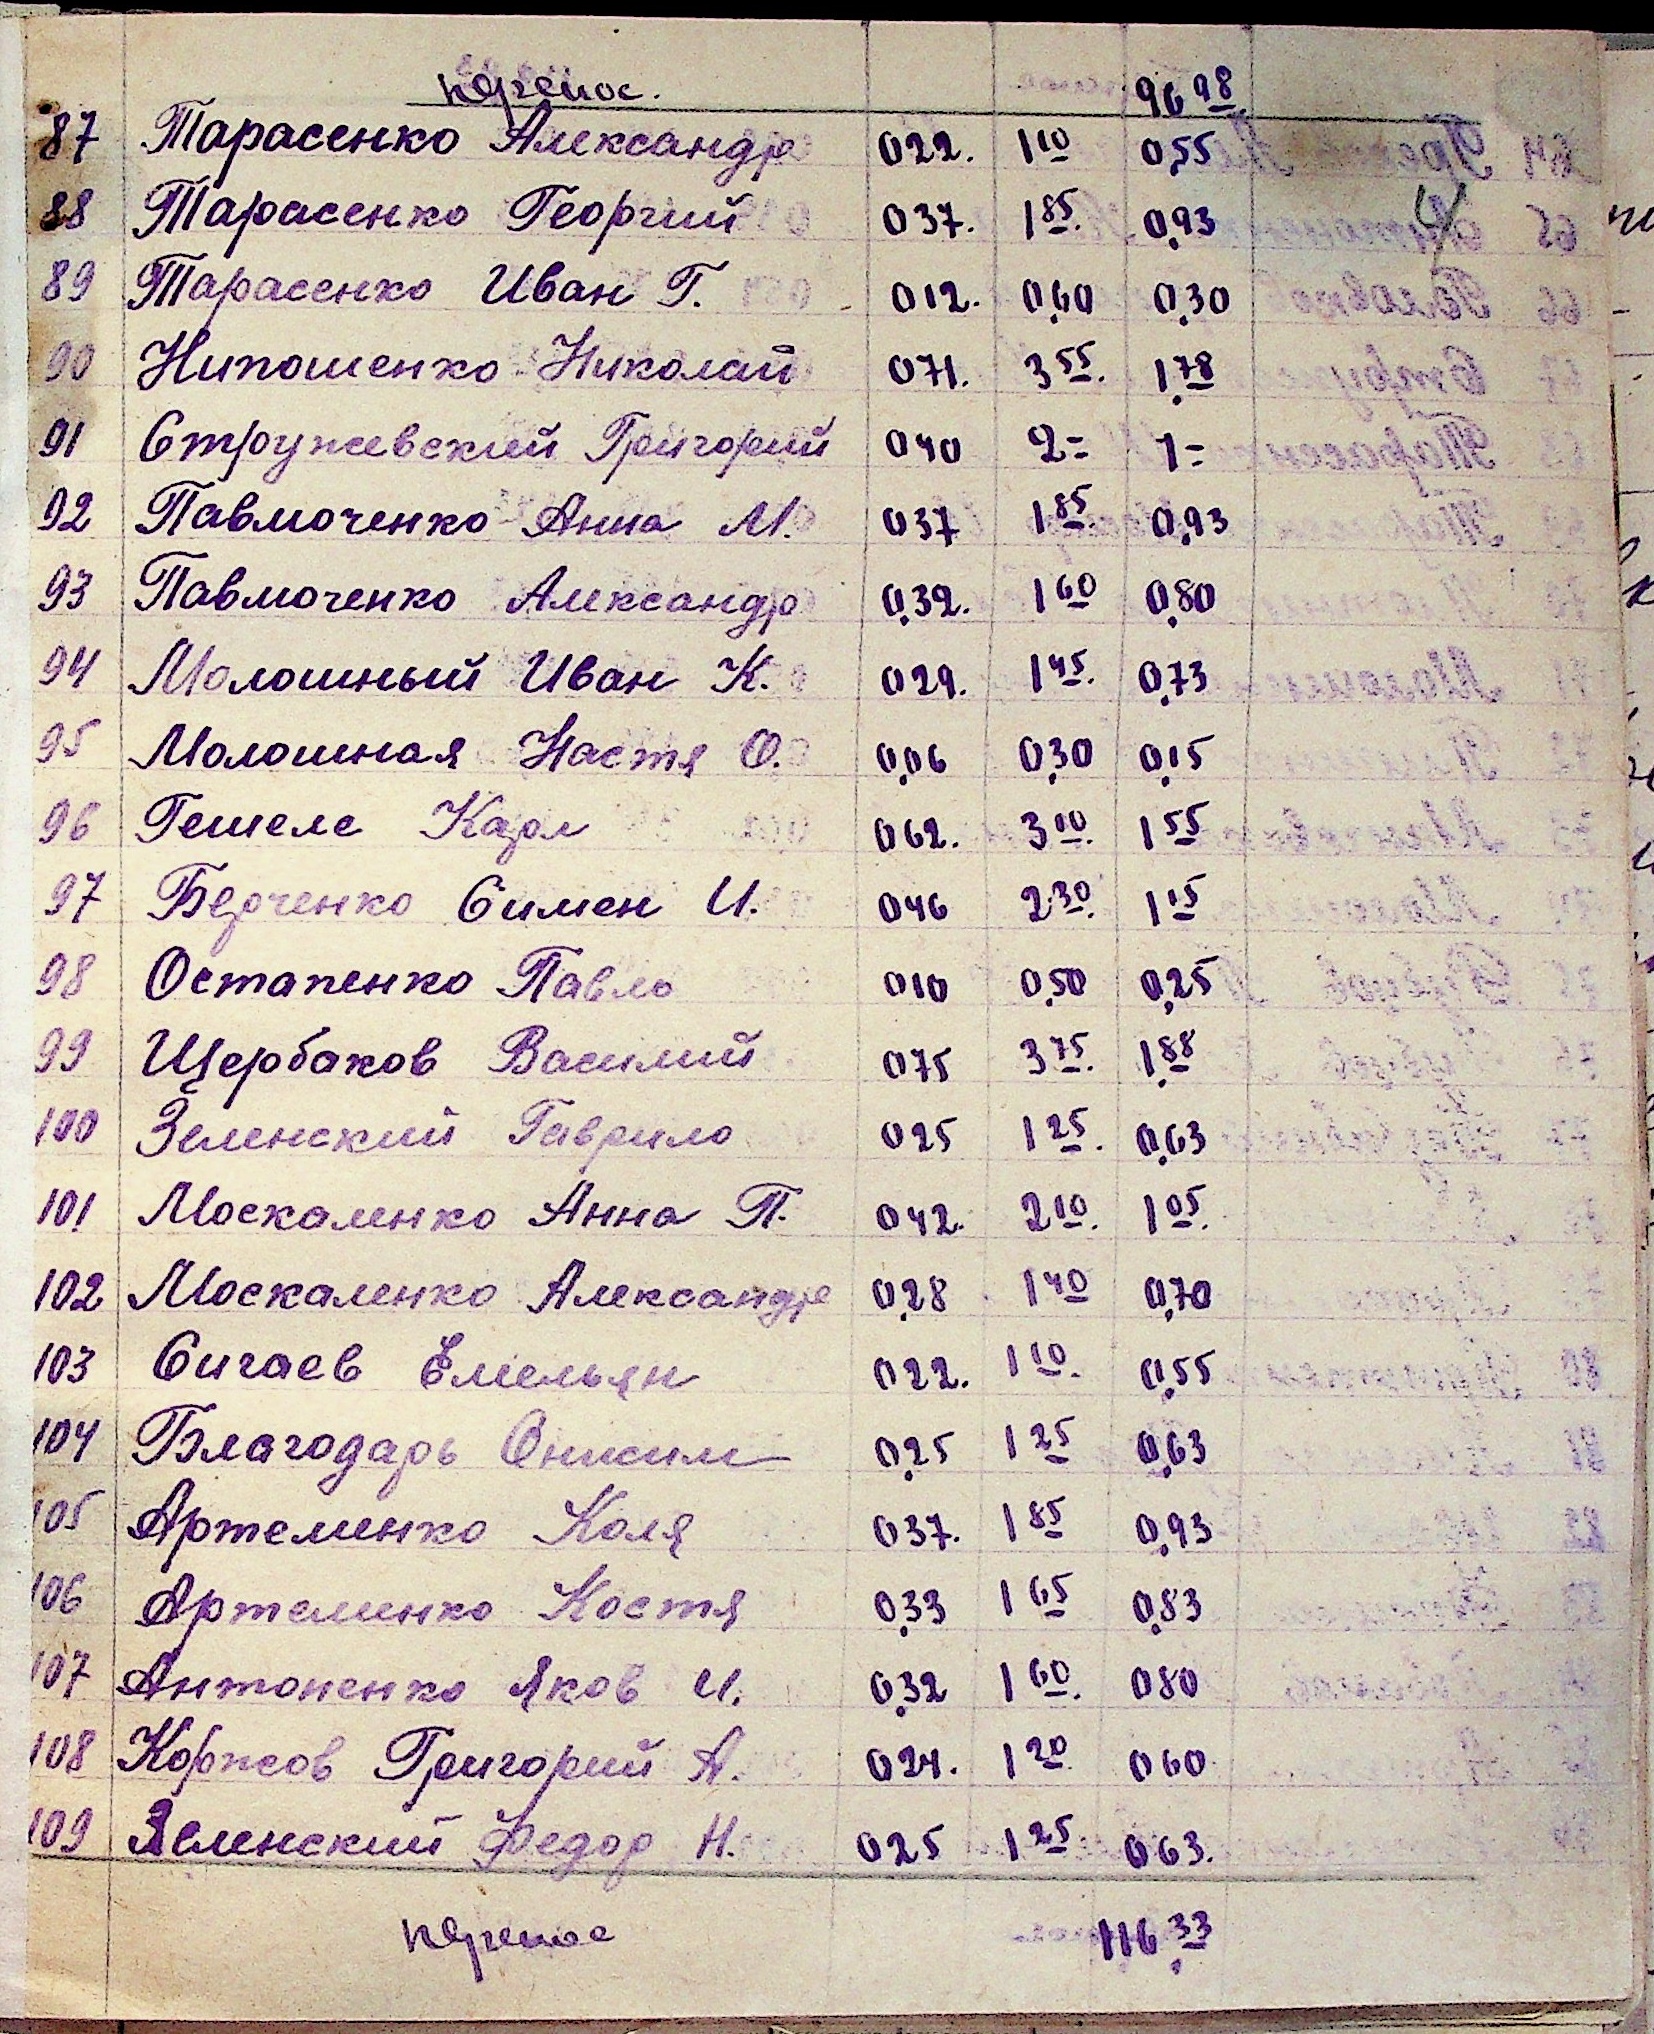 перенос. 96 98
87 Тарасенко Александр 022. 1 10 0,55
88 Тарасенко Георгий 037. 1 85. 0,93
89 Тарасенко Иван Г. 012. 0,60 0,30
90 Нипошенко Николай 071. 3 55. 1,78
91 Стружевский Григорий 040 2= 1=
92 Павмоченко Анна М. 037 1 85. 0,93
93 Павмоченко Александр 0,32. 1 60 0,80
94 Молошный Иван К. 029. 1 45. 0,73
95 Молошная Настя О. 0,06 0,30 0,15
96 Гешеле Карл 062. 3 10. 1 55
97 Берченко Симен И. 046 2 30. 1 15
98 Остапенко Павло 010 0,50 0,25
99 Щербаков Василий 075 3 75. 1,88
100 Зеленский Гаврило 025 1 25. 0,63
101 Москаленко Анна П. 042. 2 10. 1 05.
102 Москаленко Александр 0,28 1 40 0,70
103 Сигаев Емельян 022. 1 10. 0,55
104 Благодарь Онисим 0,25 1 25 0,63
105 Артеменко Коля 037. 1 85 0,93
106 Артеменко Костя 0,33 1 65 0,83
107 Антоненко Яков И. 0,32 1 60. 080
108 Коржов Григорий А. 024. 1 20 060
109 Зеленский Федор Н. 025 1 25 063.
перенос 116,33